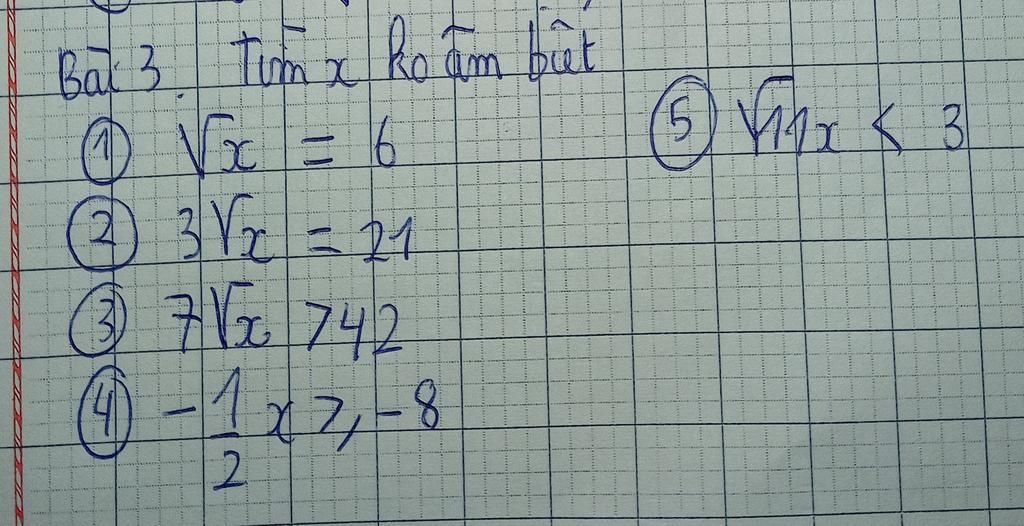 Bài 3. Tìm x ko âm biết
① √x = 6
② 3√x = 21
③ 7√x > 42
④ -1/2 x ≥ -8
⑤ √11x < 3